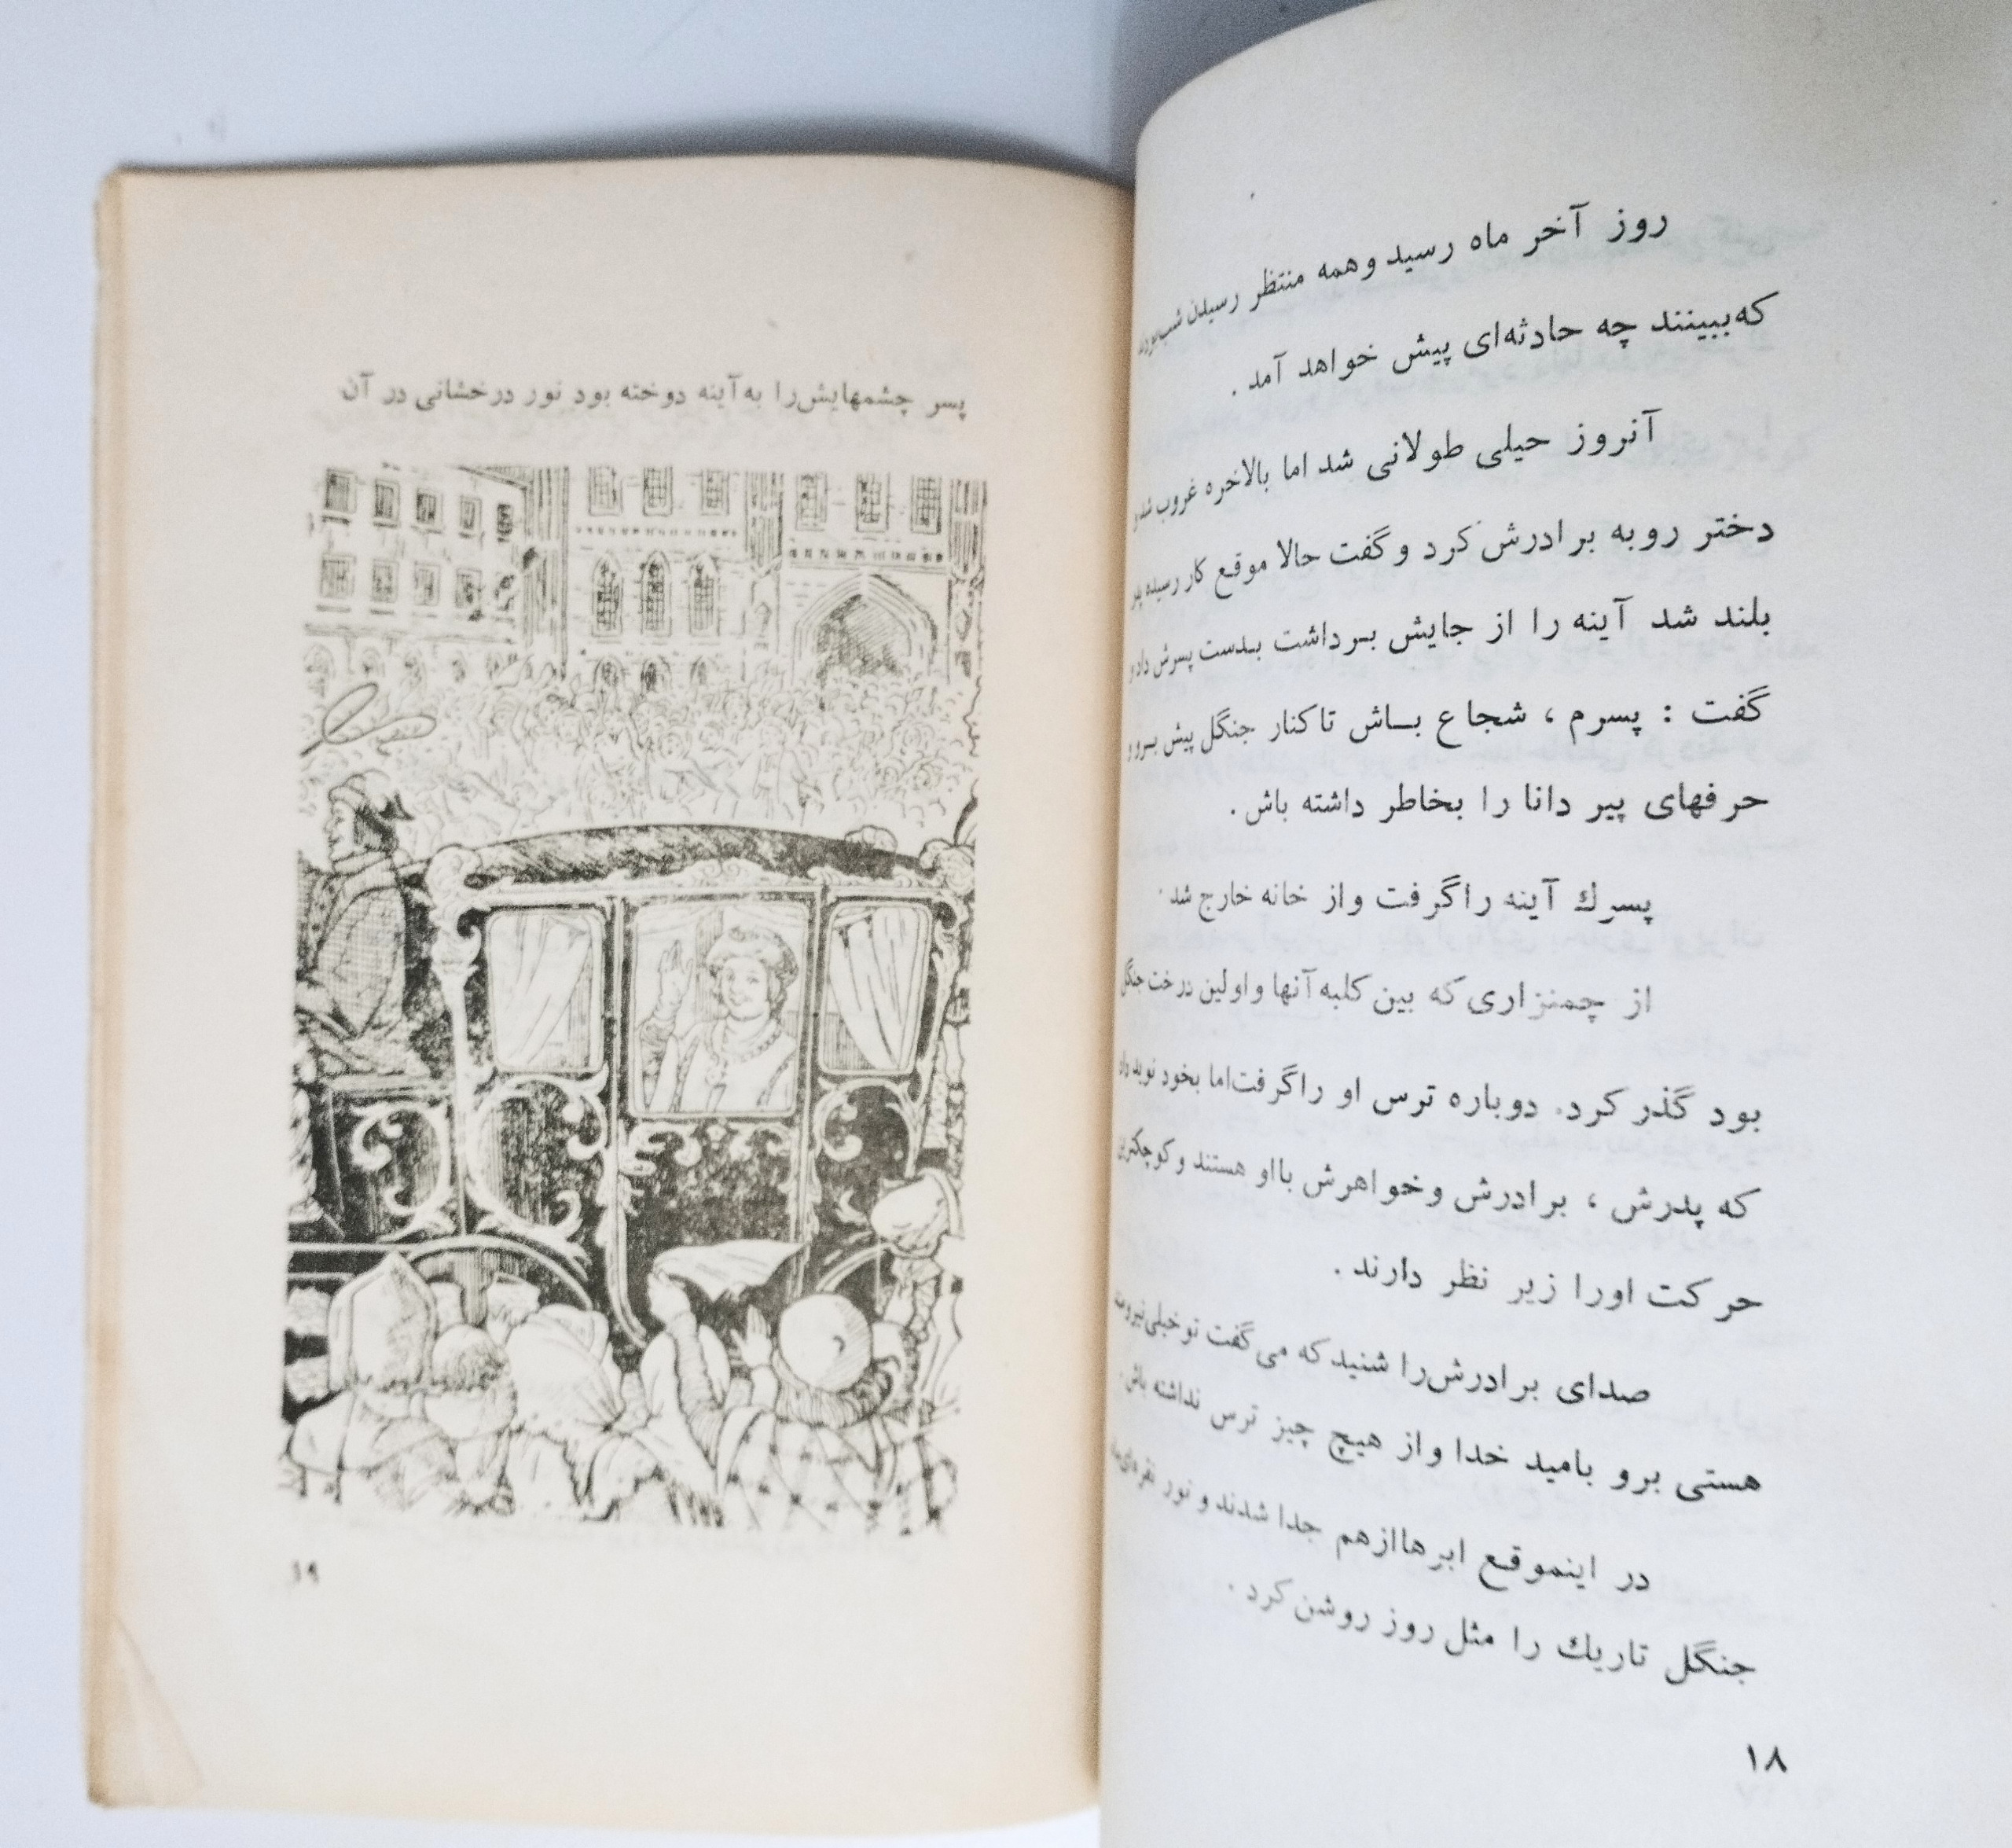 روز آخر ماه رسید و همه منتظر رسیدن شب بودند
که ببینند چه حادثه‌ای پیش خواهد آمد .
آنروز حیلی طولانی شد اما بالاخره غروب شد و
دختر رو به برادرش کرد و گفت حالا موقع کار رسیده پدر
بلند شد آینه را از جایش برداشت بدست پسرش داد و
گفت : پسرم ، شجاع باش تا کنار جنگل پیش برو و
حرفهای پیر دانا را بخاطر داشته باش .
پسرك آینه را گرفت و از خانه خارج شد .
از چمنزاری که بین کلبه آنها و اولین درخت جنگل
بود گذر کرد. دوباره ترس او را گرفت اما بخود نوید داد
که پدرش ، برادرش و خواهرش با او هستند و کوچکترین
حرکت اورا زیر نظر دارند .
صدای برادرش‌را شنید که می‌گفت تو خیلی نیرومند
هستی برو بامید خدا و از هیچ چیز ترس نداشته باش .
در اینموقع ابرها از هم جدا شدند و نور نقره‌ای
جنگل تاریك را مثل روز روشن کرد .
۱۸
پسر چشمهایش‌را به‌آینه دوخته بود نور درخشانی در آن
۱۹